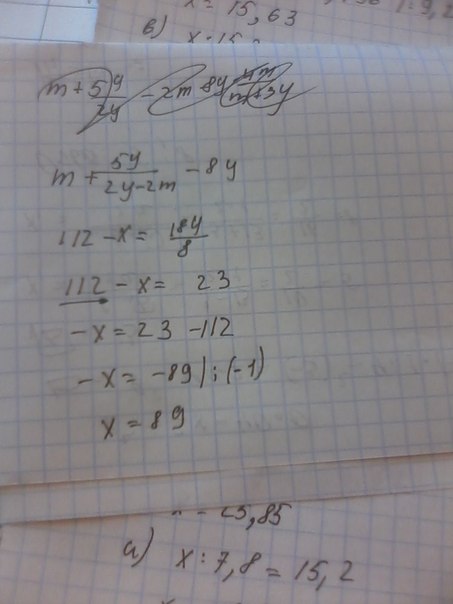 x = 15,63
в)
m + 5y/2y - 2m - 8y
m + 5y/(2y-2m) - 8y
112 - x = 184/8
112 - x = 23
-x = 23 - 112
-x = -89 | : (-1)
x = 89
25,85
а) x : 7,8 = 15,2